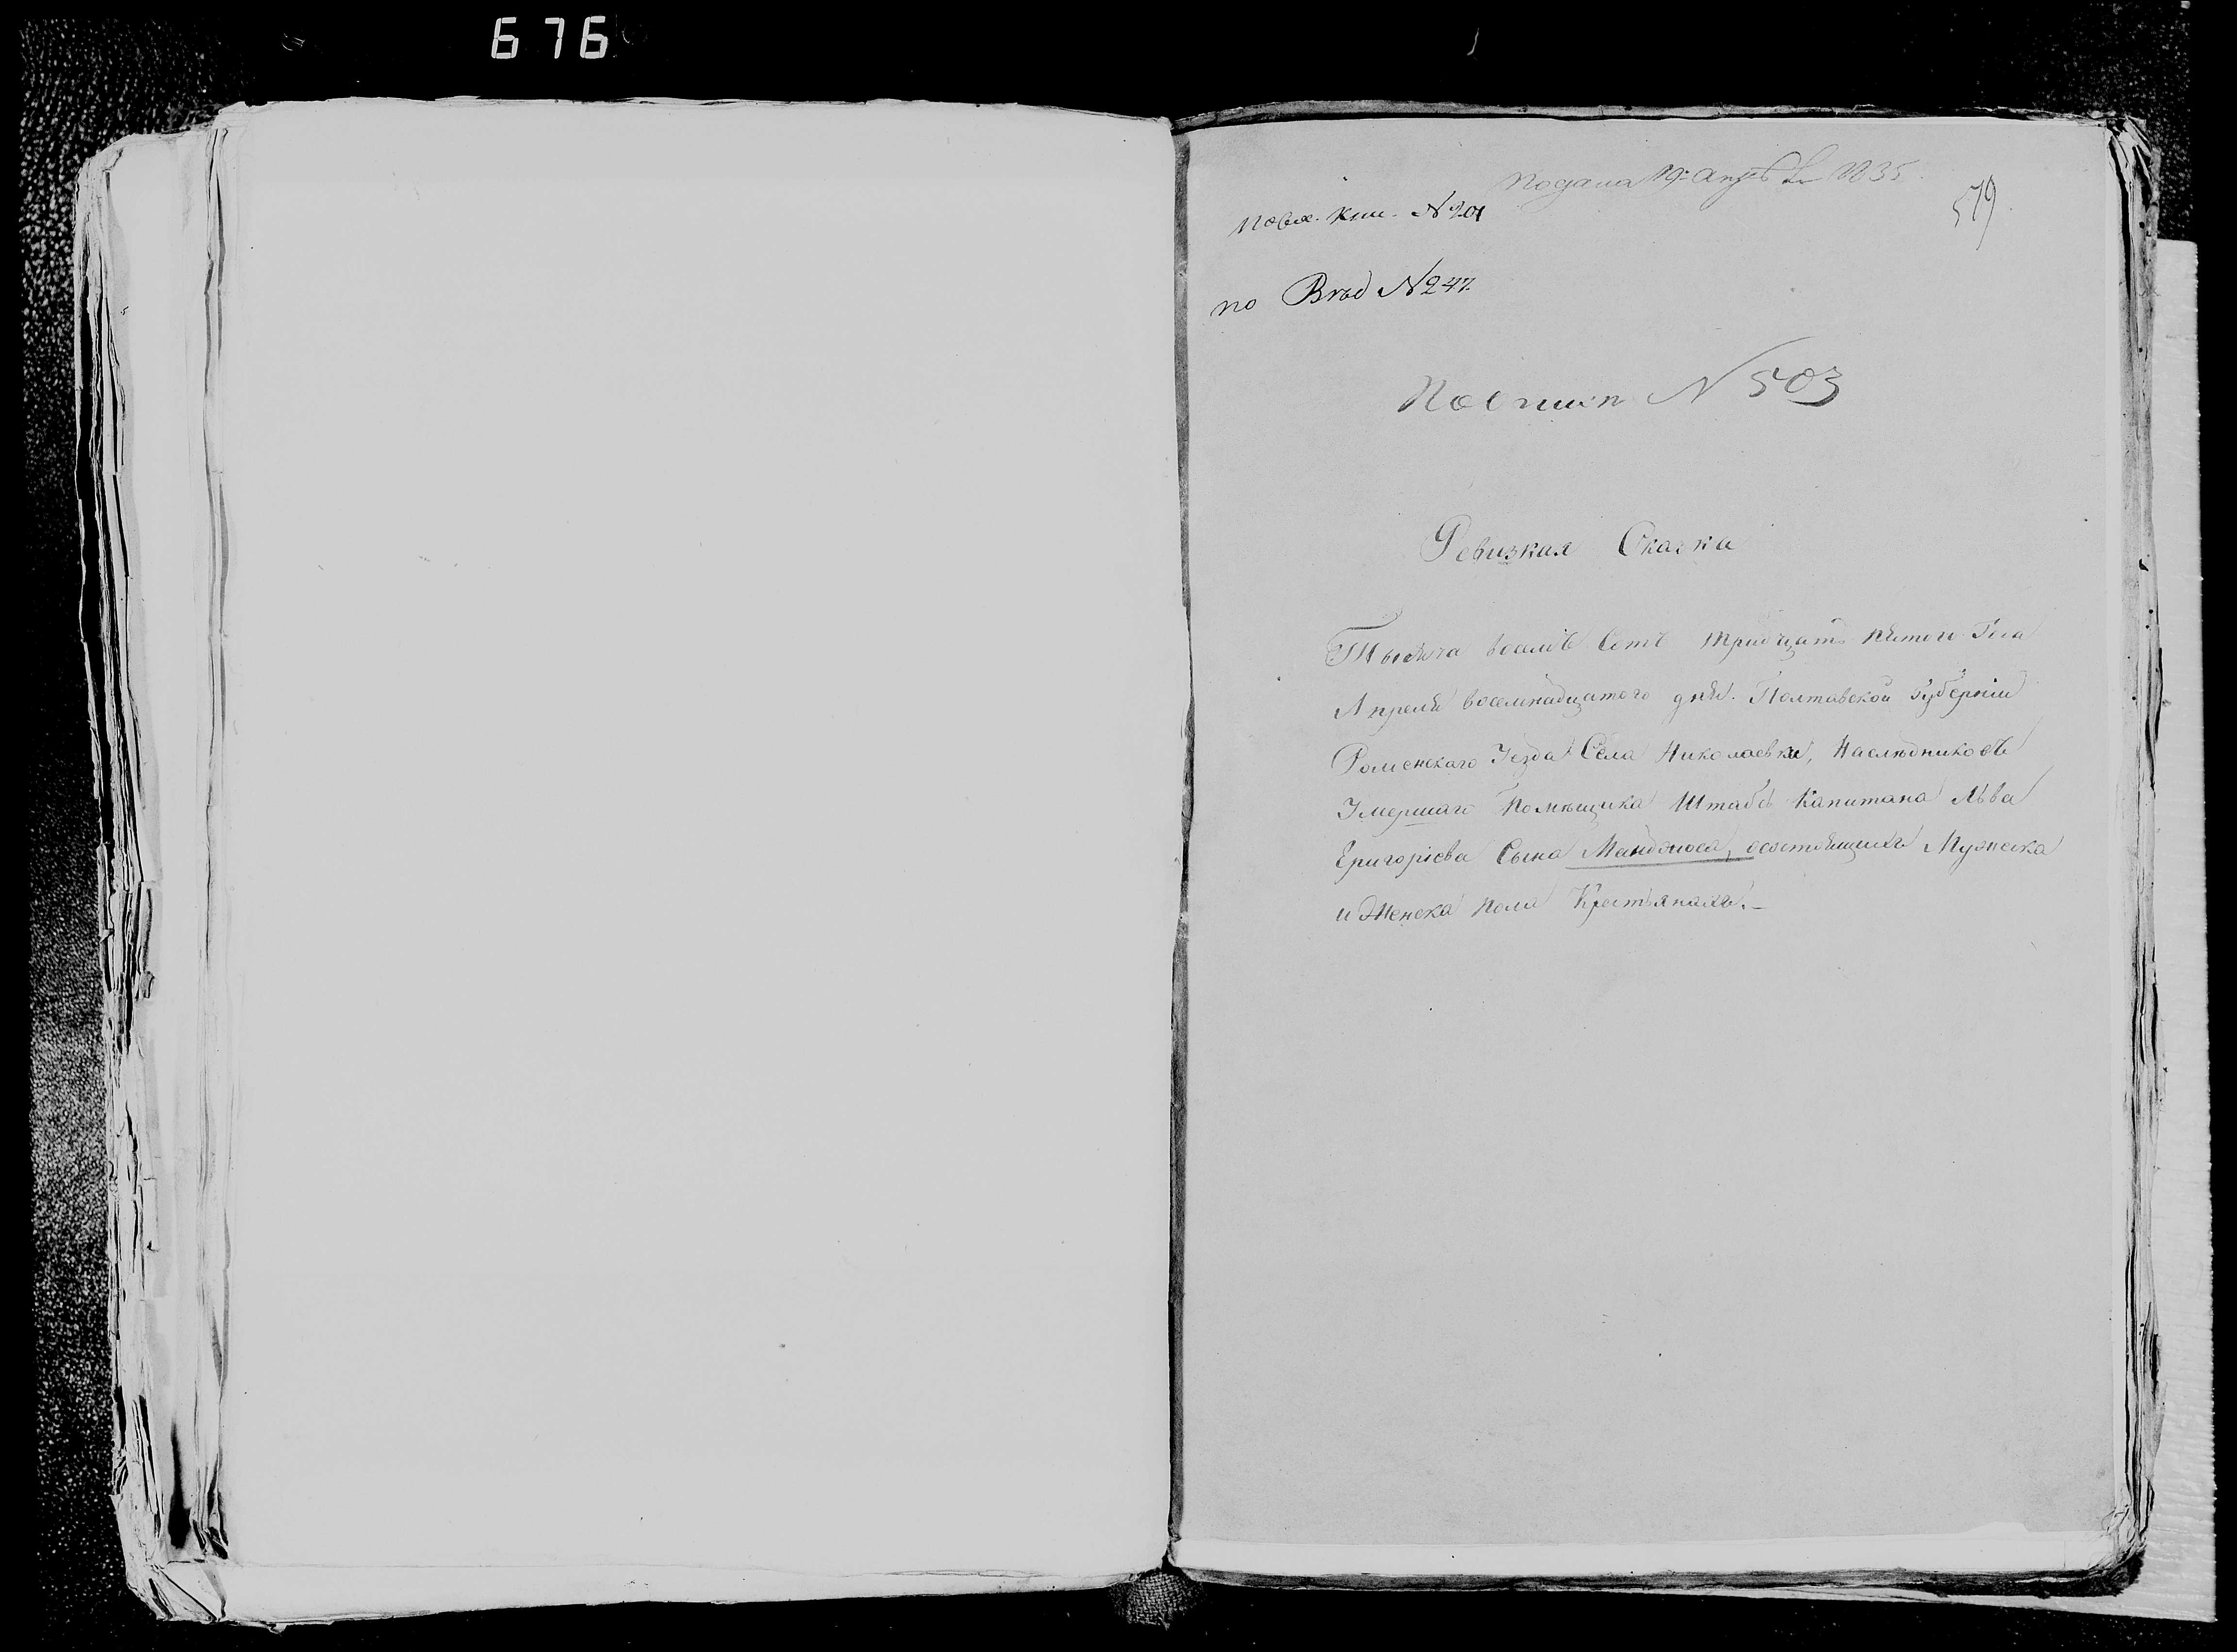 676
Подана 19 Апръ 1835
579
по вх. кни. N 201
по Вѣд N 247
По Опи N 503
Ревизкая Сказка
Тысяча восемь Сотъ тридцать пятого Года
Апреля восемнадцатого дня. Полтавской Губерніи
Роменскаго Уезда Села Николаевки, Наслѣдниковъ
Умершаго Помѣщика Штабсъ Капитана Льва
Григорієва Сына Мандэюоса, осостоящихъ Мужеска
и Женска пола Крестьянахъ.-